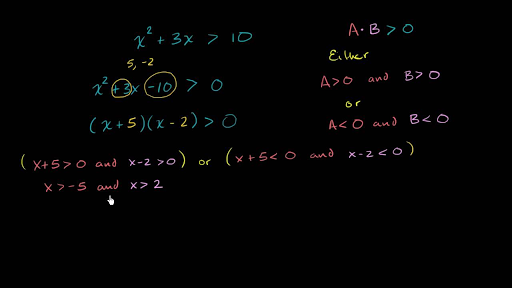 x² + 3x > 10
5, -2
x² +3x -10 > 0
(x+5)(x-2) > 0
(x+5>0 and x-2>0) or (x+5<0 and x-2<0)
x>-5 and x>2
A·B > 0
Either
A>0 and B>0
or
A<0 and B<0